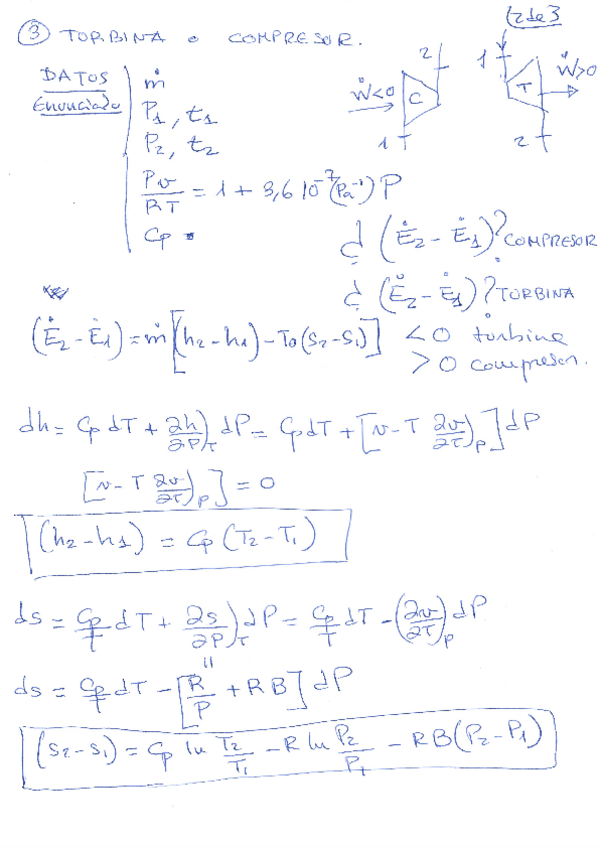 (2 de 3
③ TURBINA o COMPRESOR.
DATOS
Enunciado
ṁ
P₁, t₁
P₂, t₂
Pv/RT = 1 + 3,6 10⁻⁷ (Pa⁻¹) P
Cp
Ẇ<0 C 1 2
1 T Ẇ>0 2
¿ (Ė₂ - Ė₁)? COMPRESOR
¿ (Ė₂ - Ė₁)? TURBINA
(Ė₂ - Ė₁) = ṁ [(h₂ - h₁) - T₀ (s₂ - s₁)] < 0 turbina
> 0 compresor.
dh = Cp dT + ∂h/∂P)_T dP = Cp dT + [v - T ∂v/∂T)_P] dP
[v - T ∂v/∂T)_P] = 0
(h₂ - h₁) = Cp (T₂ - T₁)
ds = Cp/T dT + ∂s/∂P)_T dP = Cp/T dT - (∂v/∂T)_P dP
ds = Cp/T dT - [R/P + RB] dP
(s₂ - s₁) = Cp ln T₂/T₁ - R ln P₂/P₁ - RB (P₂ - P₁)